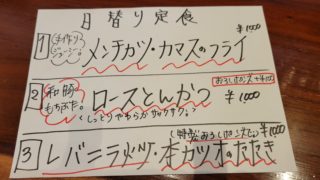 日替り定食
1 手作り♪ ジューシー。 メンチカツ・カマスのフライ ¥1000
おろしポン酢+¥100
2 和豚もちぶた。 ロースとんかつ ¥1000
くしっとりやわらかサックサク。
(特製おろしポン酢で) ¥1000
3 レバニラ炒め・本カツオのたたき